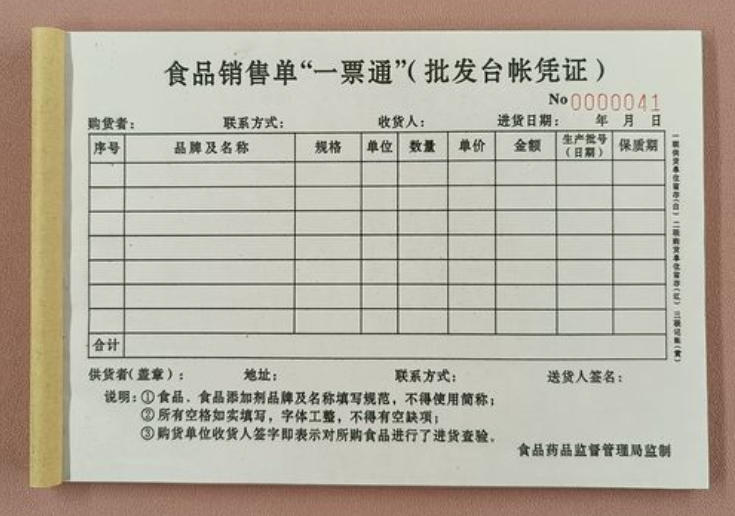 食品销售单“一票通”(批发台帐凭证)
No 0000041
购货者: 联系方式: 收货人: 进货日期: 年 月 日
序号 品牌及名称 规格 单位 数量 单价 金额 生产批号(日期) 保质期
合计
供货者(盖章): 地址: 联系方式: 送货人签名:
说明:①食品、食品添加剂品牌及名称填写规范，不得使用简称;
②所有空格如实填写，字体工整，不得有空缺项;
③购货单位收货人签字即表示对所购食品进行了进货查验。
食品药品监督管理局监制
一联供货单位留存(白) 二联购货单位留存(红) 三联记账(黄)